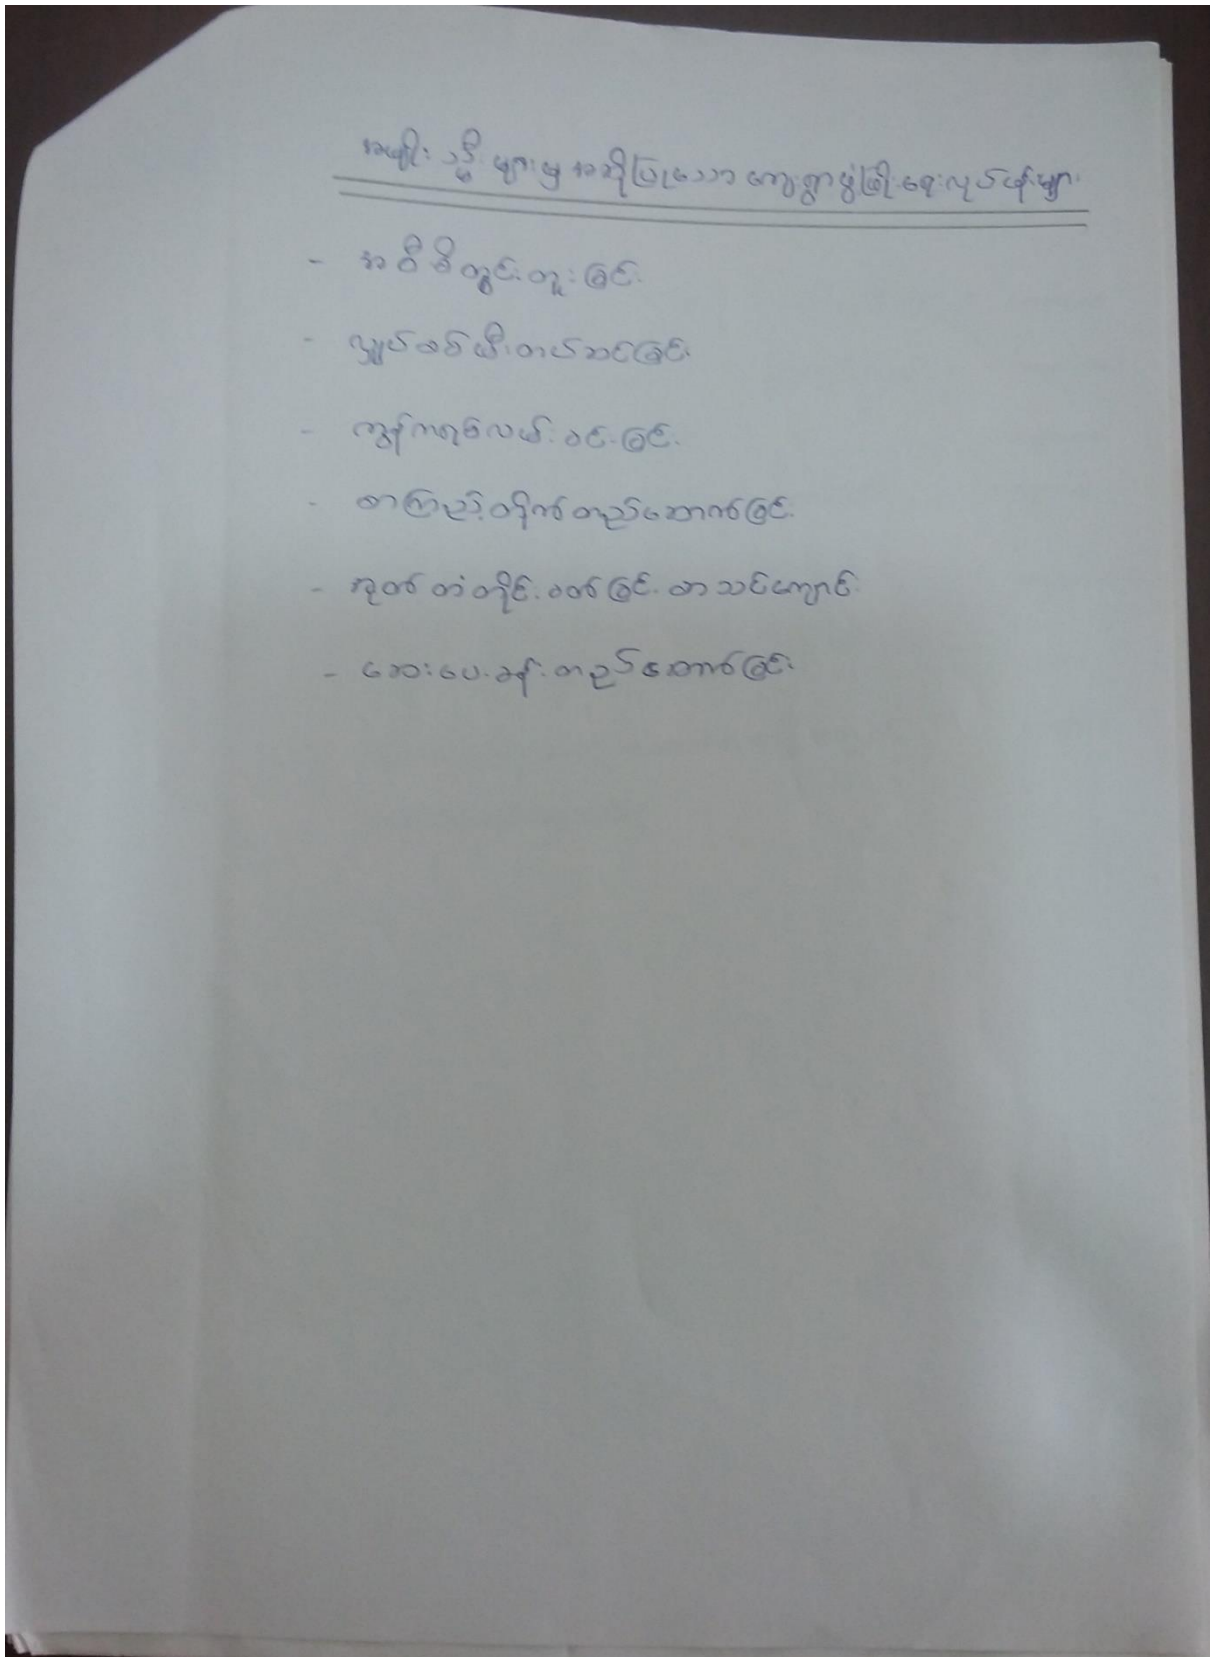 အမျိုးသမီးများမှ အဆိုပြုသော ကျေးရွာဖွံ့ဖြိုးရေးလုပ်ငန်းများ
- အဝီစိတွင်းတူးခြင်း
- လျှပ်စစ်မီးတပ်ဆင်ခြင်း
- ကွန်ကရစ်လမ်းခင်းခြင်း
- စာကြည့်တိုက်တည်ဆောက်ခြင်း
- အုတ်တံတိုင်းခတ်ခြင်း စာသင်ကျောင်း
- ဆေးပေးခန်းတည်ဆောက်ခြင်း